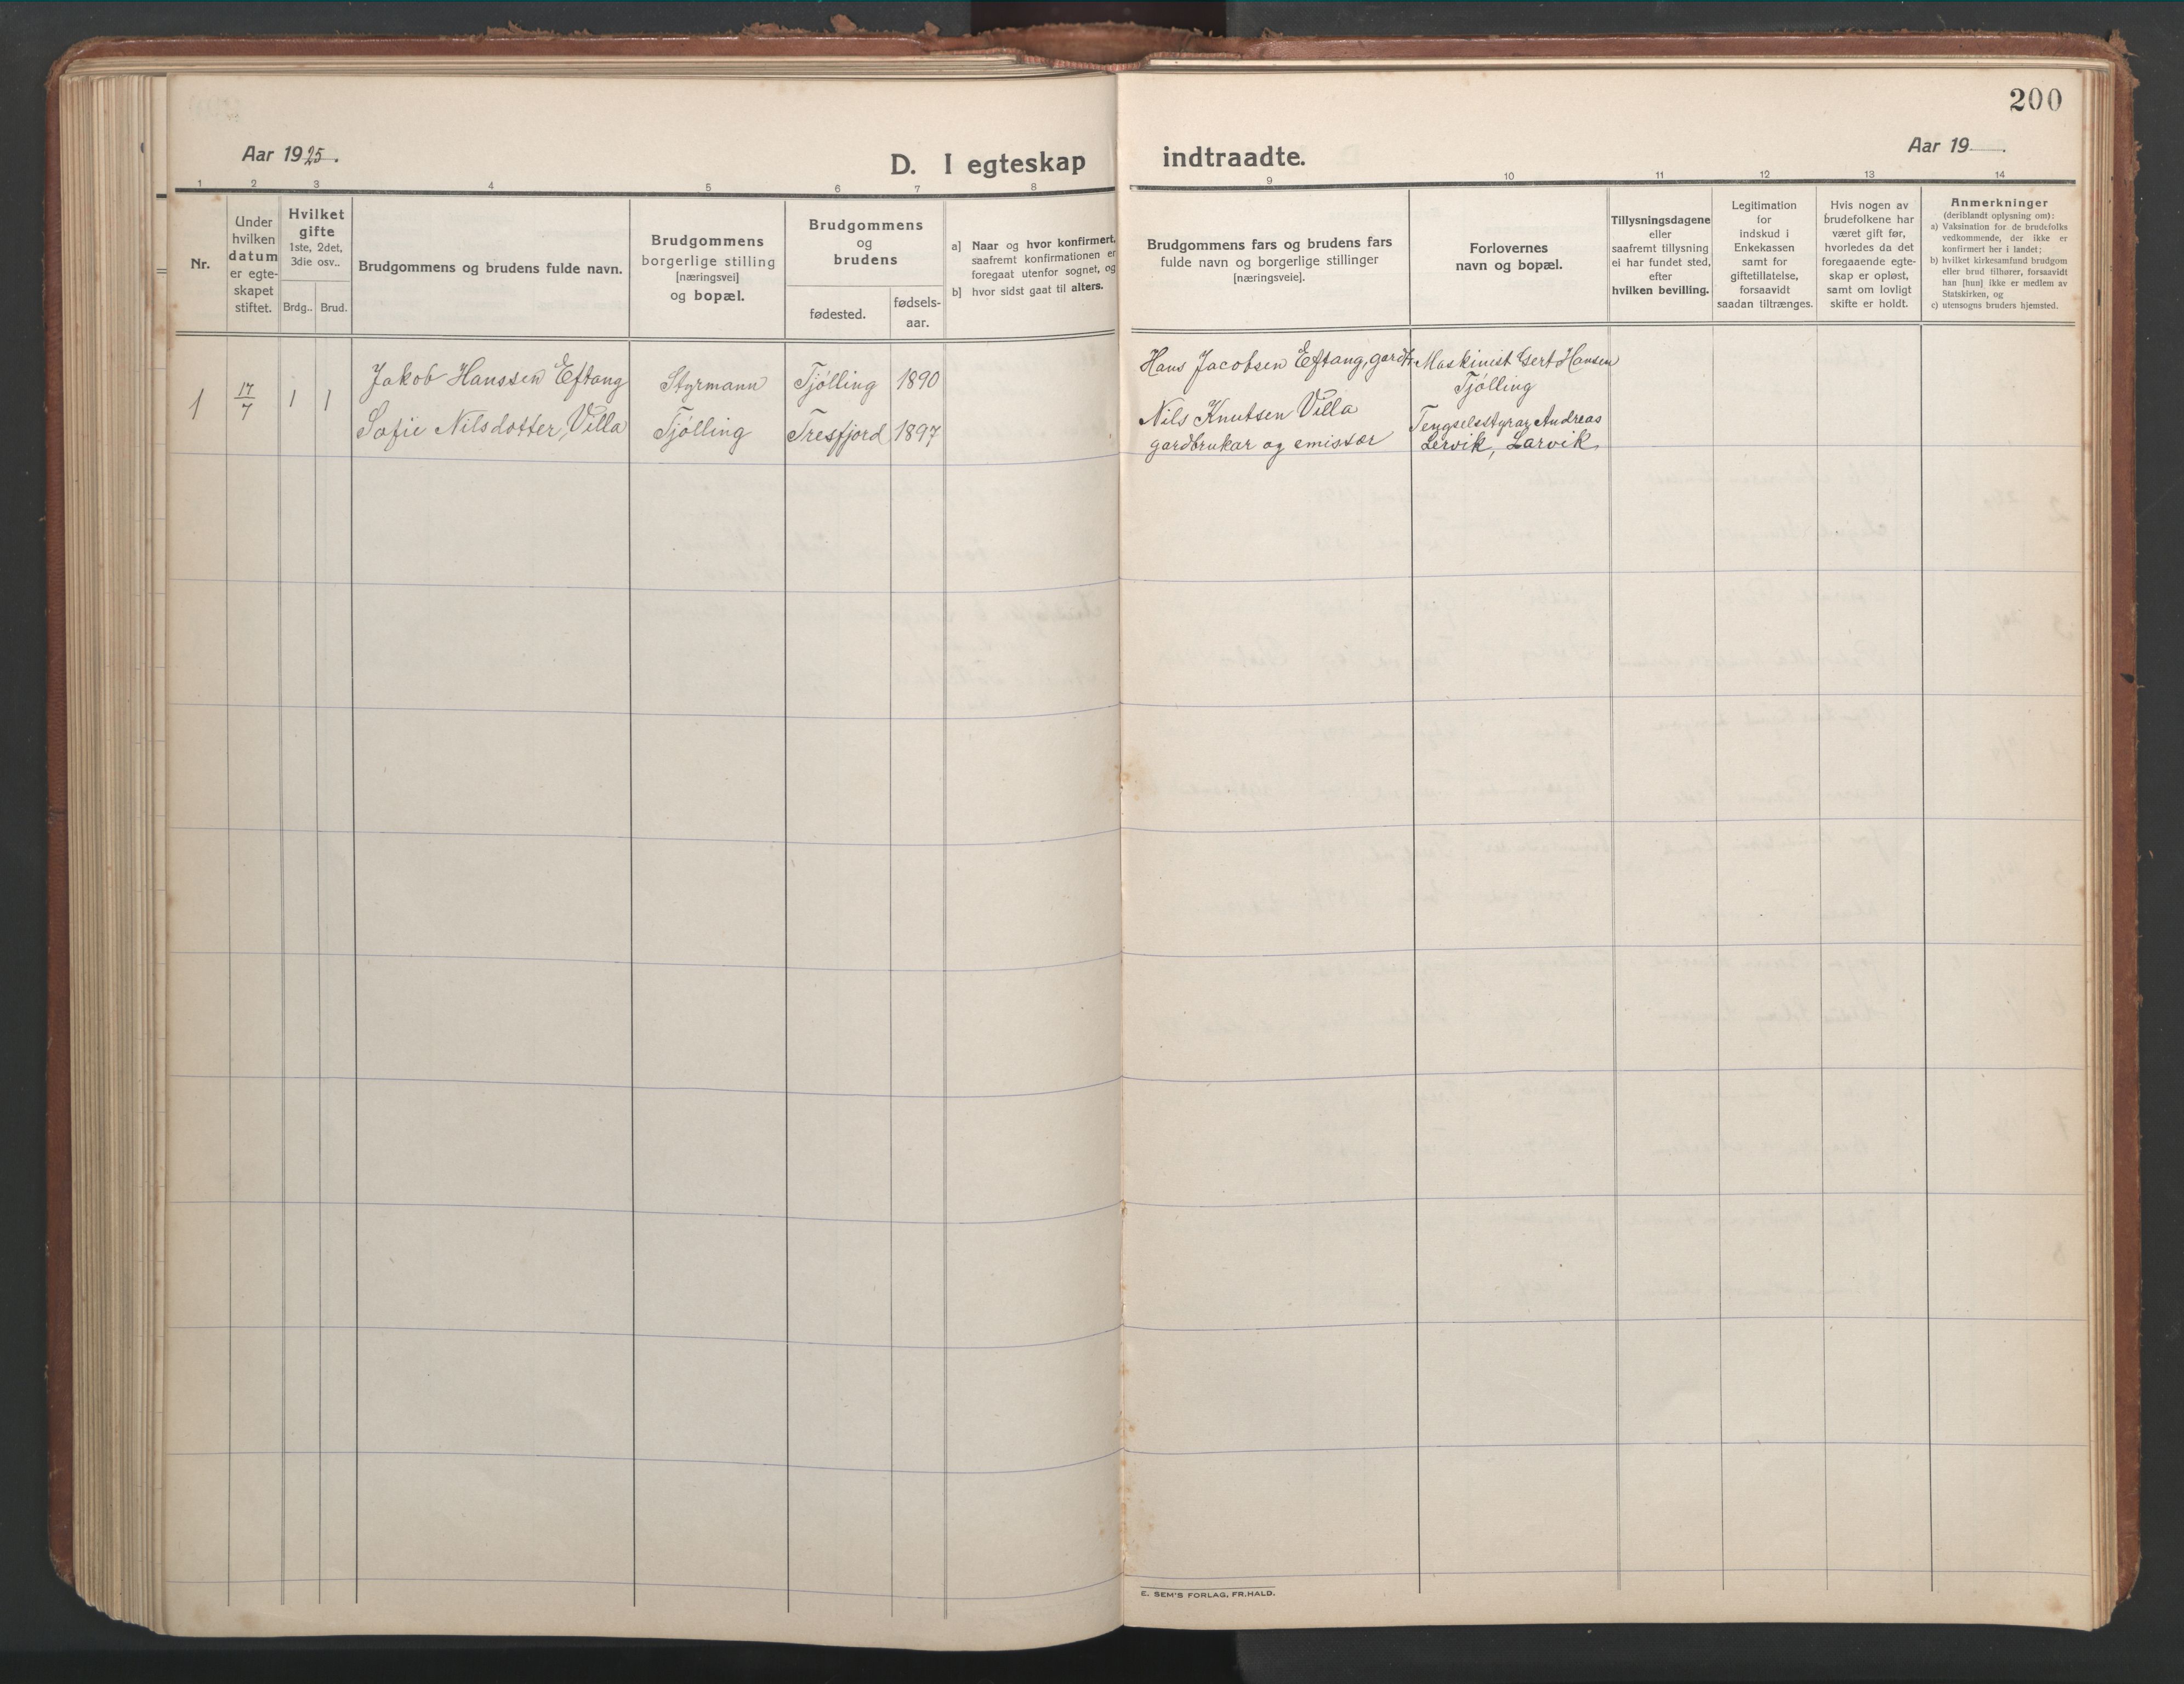 200
Aar 1925.
D. I egteskap indtraadte.
Aar 19 .
1 2 3 4 5 6 7 8 9 10 11 12 13 14
Nr.
Under
hvilken
datum
er egte-
skapet
stiftet.
Hvilket
gifte
1ste, 2det,
3die osv..
Brdg.. Brud.
Brudgommens og brudens fulde navn.
Brudgommens
borgerlige stilling
[næringsvei]
og bopæl.
Brudgommens
og
brudens
fødested.
fødsels-
aar.
a] Naar og hvor konfirmert,
saafremt konfirmationen er
foregaat utenfor sognet, og
b] hvor sidst gaat til alters.
Brudgommens fars og brudens fars
fulde navn og borgerlige stillinger
[næringsveie].
Forlovernes
navn og bopæl.
Tillysningsdagene
eller
saafremt tillysning
ei har fundet sted,
efter
hvilken bevilling.
Legitimation
for
indskud i
Enkekassen
samt for
giftetillatelse,
forsaavidt
saadan tiltrænges.
Hvis nogen av
brudefolkene har
været gift før,
hvorledes da det
foregaaende egte-
skap er opløst,
samt om lovligt
skifte er holdt.
Anmerkninger
(deriblandt oplysning om):
a) Vaksination for de brudefolks
vedkommende, der ikke er
konfirmert her i landet;
b) hvilket kirkesamfund brudgom
eller brud tilhører, forsaavidt
han [hun] ikke er medlem av
Statskirken, og
c) utensogns bruders hjemsted.
1 17/7 1 1
Jakob Hanssen Eftang
Sofie Nilsdotter Villa
Styrmann
Tjølling
Tjølling 1890
Tresfjord 1897
Hans Jacobsen Eftang, gardbr.
Nils Knutsen Villa
gardbrukar og emissær
Maskinist Gert Hansen
Tjølling
Fengselsstyrar Andreas
Lervik, Larvik
E. SEM'S FORLAG, FR.HALD.